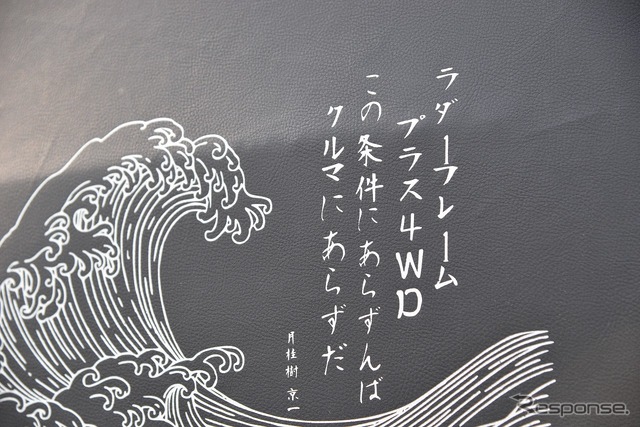 ラダーフレーム
プラス4WD
この条件にあらずんば
クルマにあらずだ
月桂樹 京一
Response.